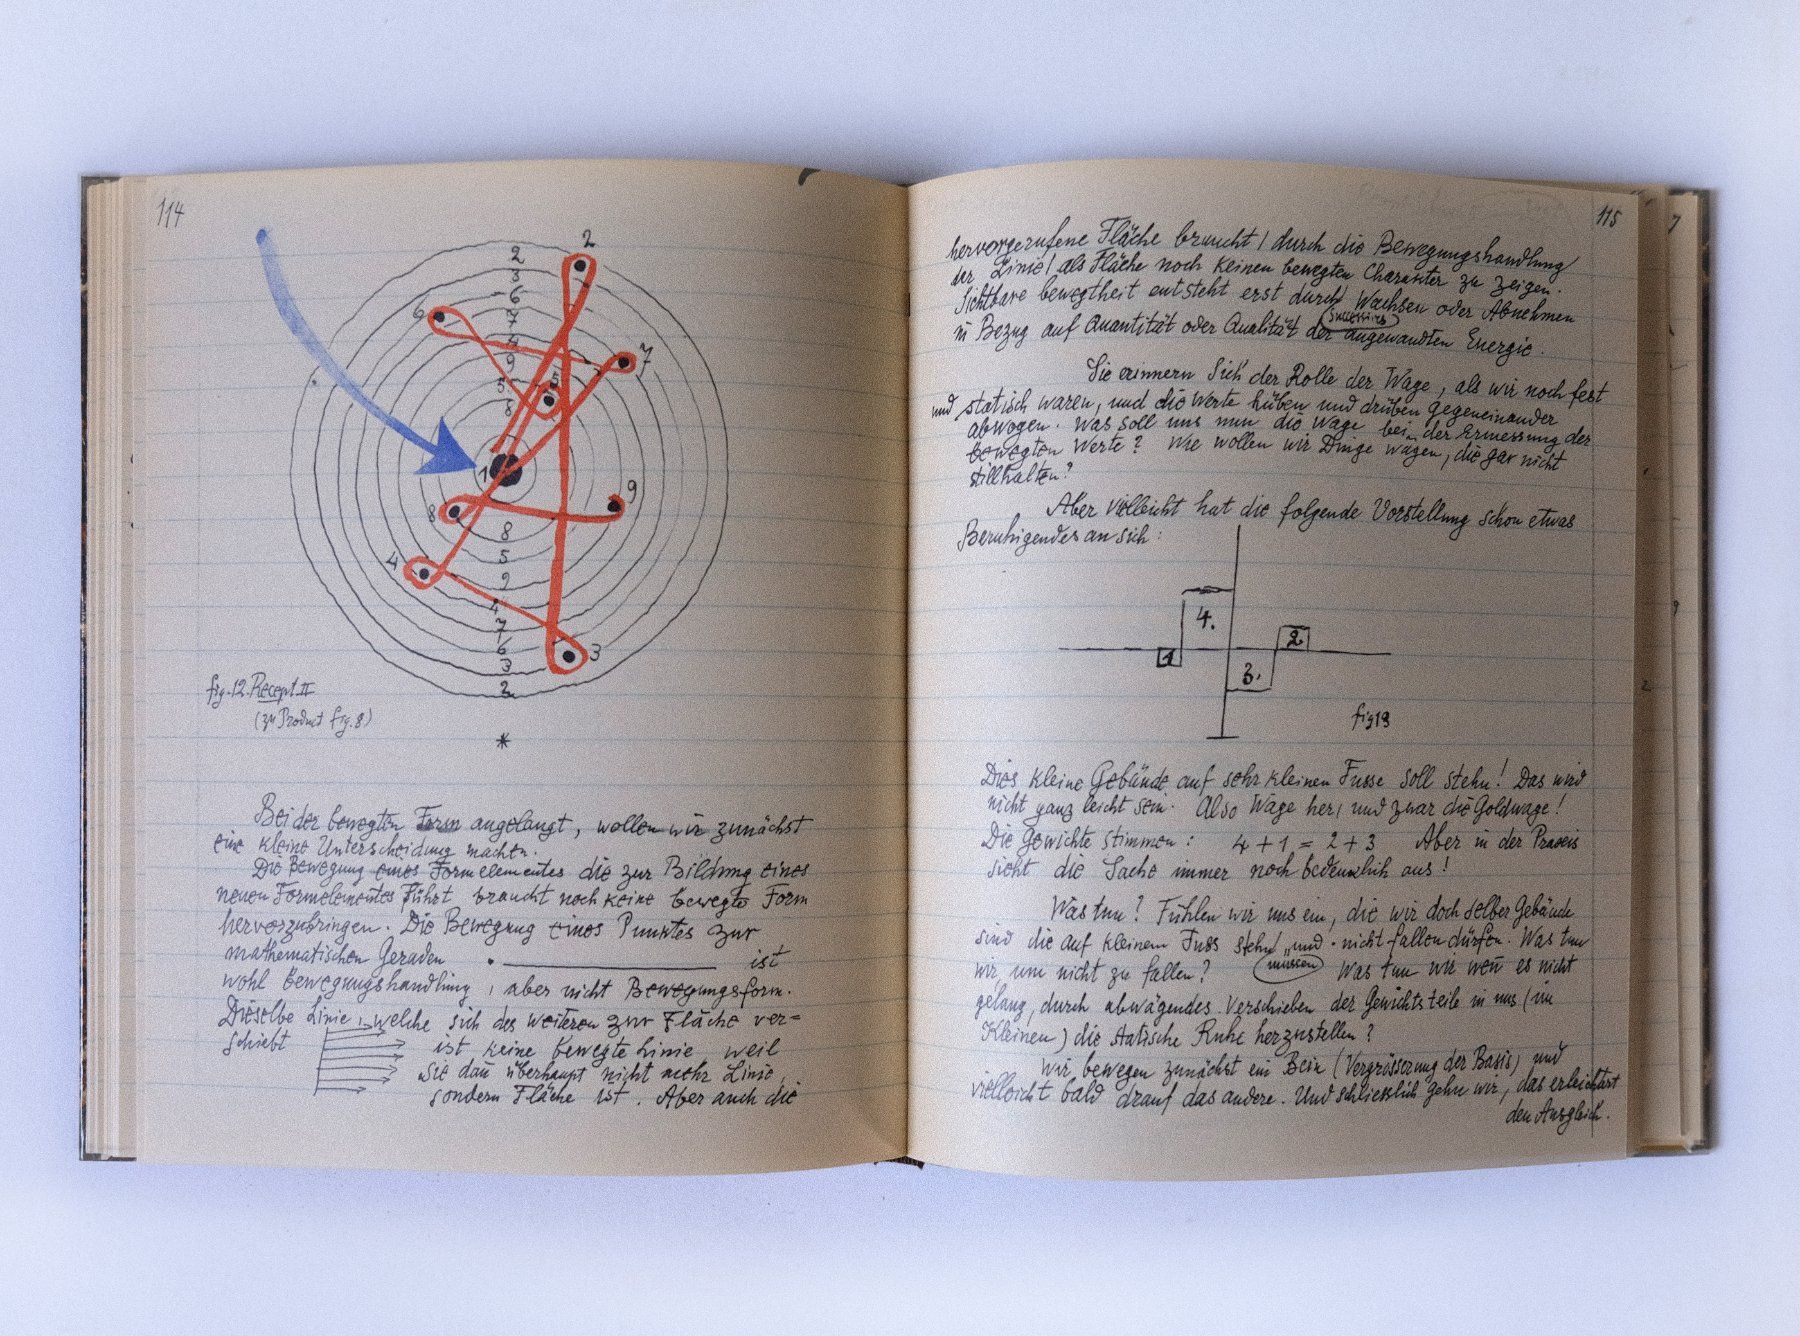 114
2
2
3
6
7
4
9
5
8
6
7
5
1
8
9
4
3
8
5
9
4
7
6
3
2
fig. 12. Recept II
(zu Product fig. 8)
*
Bei der bewegten Form angelangt, wollen wir zunächst
eine kleine Unterscheidung machen.
Die Bewegung eines Formelementes die zur Bildung eines
neuen Formelementes führt, braucht noch keine bewegte Form
hervorzubringen. Die Bewegung eines Punktes zur
mathematischen Geraden ist
wohl Bewegungshandlung, aber nicht Bewegungsform.
Dieselbe Linie, welche sich des weiteren zur Fläche ver=
schiebt ist keine bewegte Linie weil
sie dan̄ überhaupt nicht mehr Linie,
sondern Fläche ist. Aber auch die
115
hervorgerufene Fläche braucht / durch die Bewegungshandlung
der Linie / als Fläche noch keinen bewegten Charakter zu zeigen.
Sichtbare bewegtheit entsteht erst durch Wachsen oder Abnehmen
successives
in Bezug auf Quantität oder Qualität der angewandten Energie.
Sie erinnern Sich der Rolle der Wage, als wir noch fest
und statisch waren, und die Werte hüben und drüben gegeneinander
abwogen. Was soll uns nun die Wage bei der Ermessung der
bewegten Werte? Wie wollen wir Dinge wägen, die gar nicht
stillhalten?
Aber vielleicht hat die folgende Vorstellung schon etwas
Beruhigendes an sich:
4.
1
2
3.
fig 13
Dies kleine Gebäude auf sehr kleinem Fusse soll stehn! Das wird
nicht ganz leicht sein. Also Wage her, und zwar die Goldwage!
Die Gewichte stimmen: 4 + 1 = 2 + 3 Aber in der Praxis
sieht die Sache immer noch bedenklich aus!
Was tun? Fühlen wir uns ein, die wir doch selber Gebäude
sind die auf kleinem Fuss stehn und nicht fallen dürfen. Was tun
müssen
wir, um nicht zu fallen? Was tun wir wen̄ es nicht
gelang, durch abwägendes Verschieben der Gewichtsteile in uns (im
Kleinen) die statische Ruhe herzustellen?
Wir bewegen zunächst ein Bein (Vergrösserung der Basis) und
vielleicht bald drauf das andere. Und schliesslich gehn wir, das erleichtert
den Ausgleich.